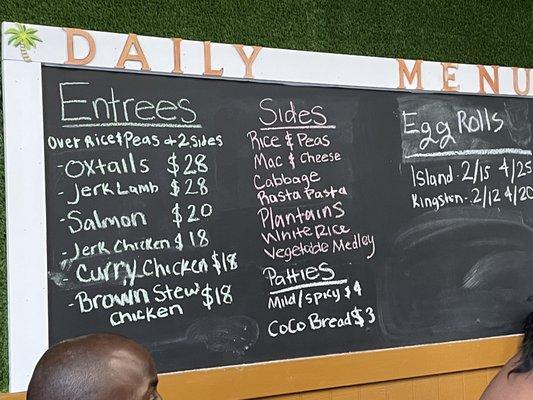 DAILY MENU
Entrees
Over Rice & Peas + 2 sides
- Oxtails $28
- Jerk Lamb $28
- Salmon $20
- Jerk Chicken $18
- Curry Chicken $18
- Brown Stew $18
Chicken
Sides
Rice & Peas
Mac & Cheese
Cabbage
Rasta Pasta
Plantains
White Rice
Vegetable Medley
Patties
Mild/spicy $4
CoCo Bread $3
Egg Rolls
Island - 2/15 4/25
Kingston - 2/12 4/20